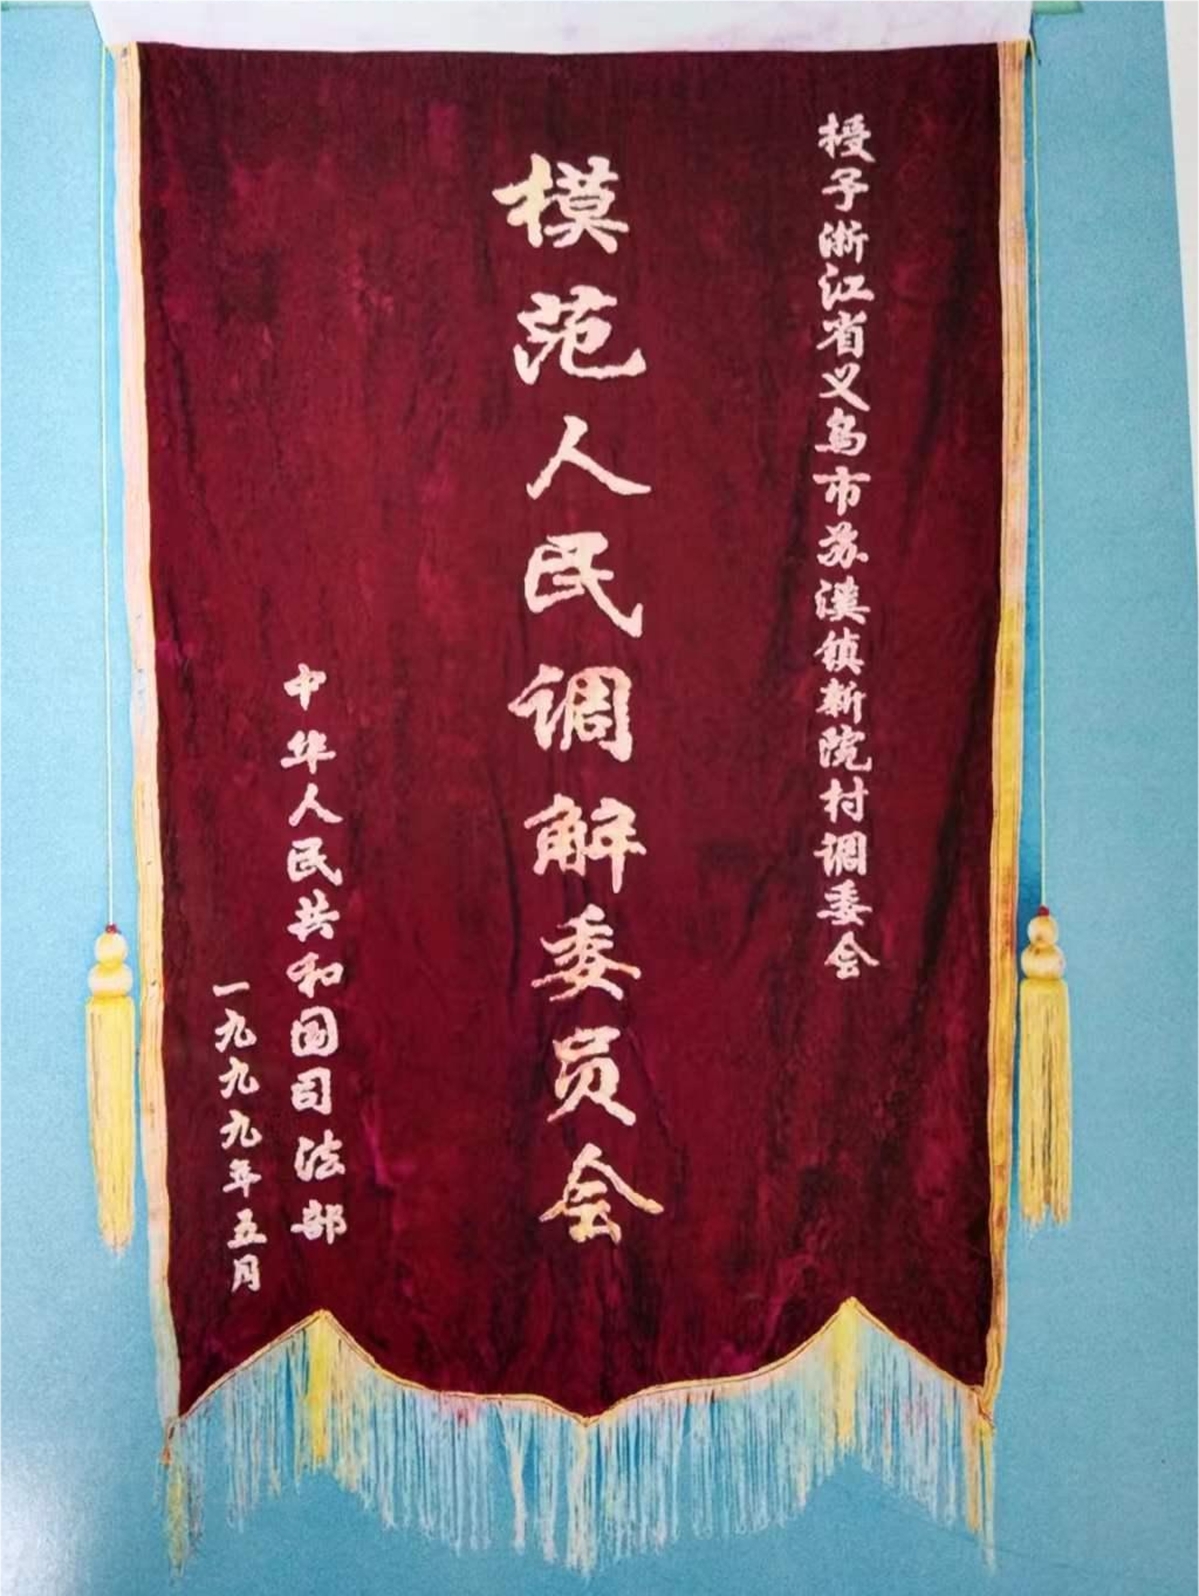 授予浙江省义乌市苏溪镇新院村调委会
模范人民调解委员会
中华人民共和国司法部
一九九九年五月